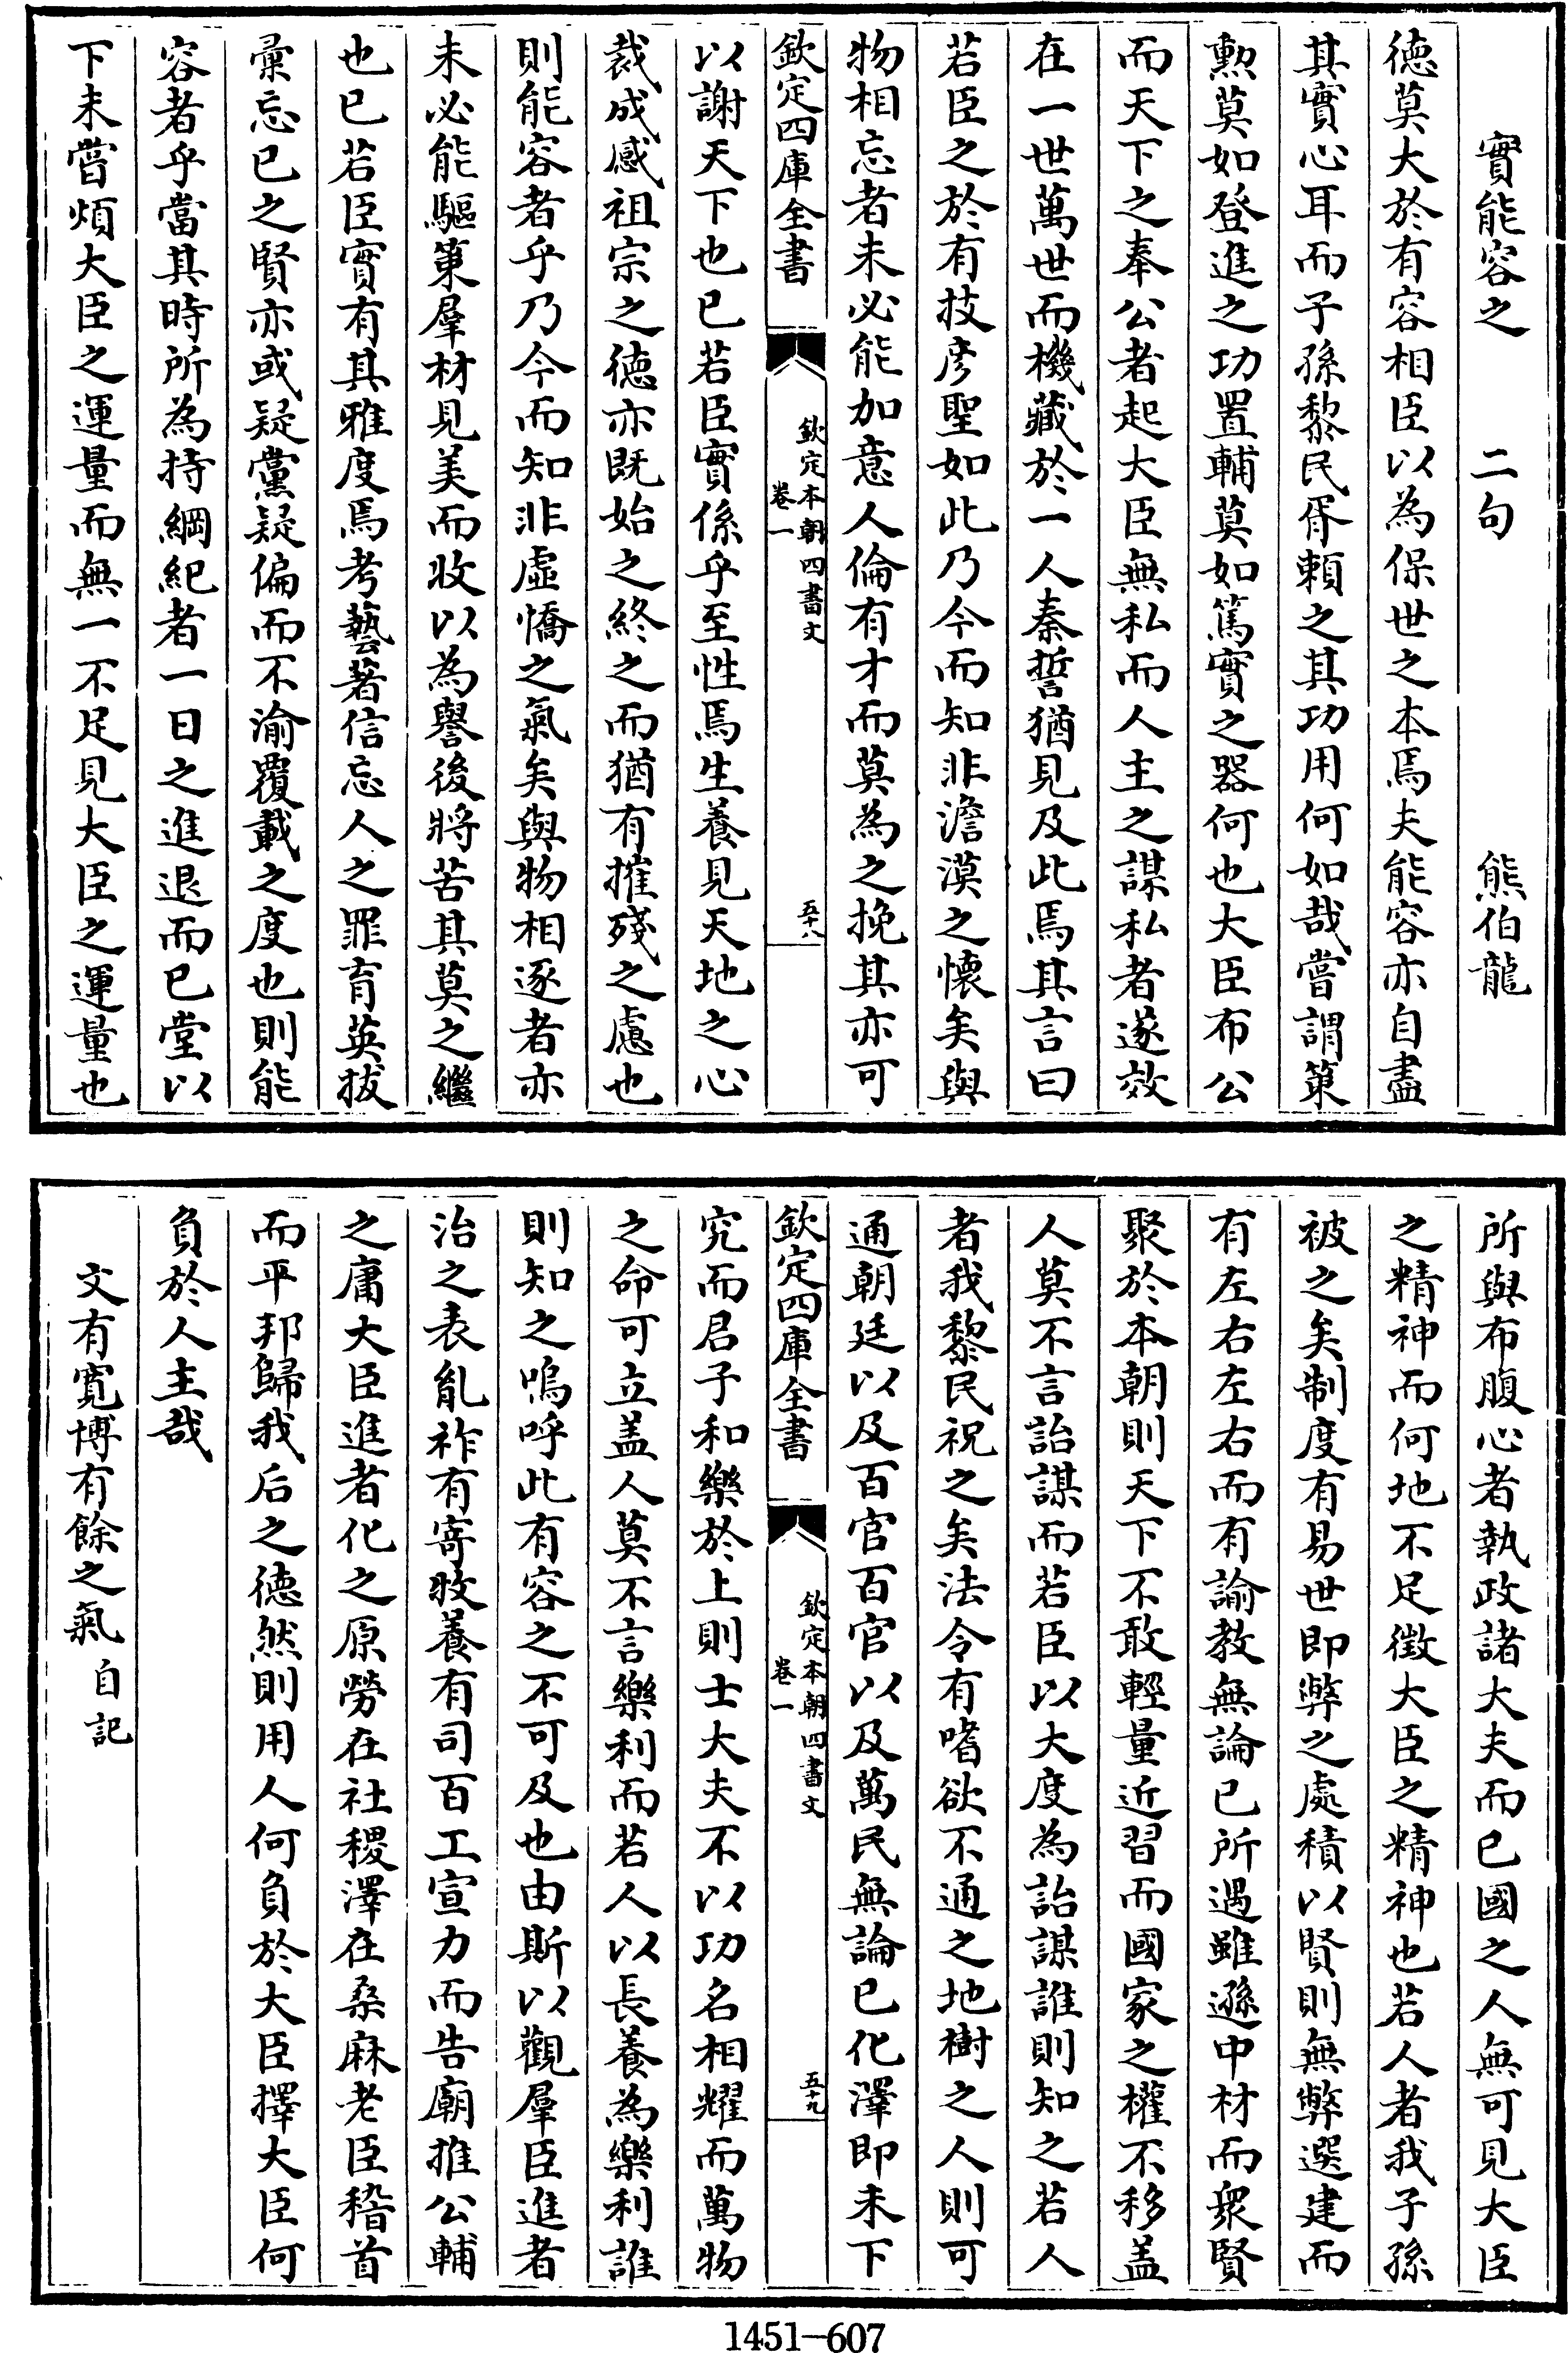 實能容之　二句　熊伯龍
德莫大於有容相臣以為保世之本焉夫能容亦自盡
其實心耳而子孫黎民胥賴之其功用何如哉嘗謂策
勲莫如登進之功置輔莫如篤實之器何也大臣布公
而天下之奉公者起大臣無私而人主之謀私者遂效
在一世萬世而機藏於一人秦誓猶見及此焉其言曰
若臣之於有技彥聖如此乃今而知非澹漠之懷矣與
物相忘者未必能加意人倫有才而莫為之挽其亦可
欽定四庫全書
欽定本朝四書文
卷一
五十八
以謝天下也已若臣實係乎至性焉生養見天地之心
裁成感祖宗之德亦既始之終之而猶有摧殘之慮也
則能容者乎乃今而知非虛憍之氣矣與物相逐者亦
未必能驅策羣材見美而收以為譽後將苦其莫之繼
也已若臣實有其雅度焉考藝著信忘人之罪育英拔
彚忘已之賢亦或疑黨疑偏而不渝覆載之度也則能
容者乎當其時所為持綱紀者一日之進退而已堂以
下未嘗煩大臣之運量而無一不足見大臣之運量也
所與布腹心者執政諸大夫而已國之人無可見大臣
之精神而何地不足徵大臣之精神也若人者我子孫
被之矣制度有易世即弊之處積以賢則無弊選建而
有左右左右而有諭教無論已所遇雖遜中材而衆賢
聚於本朝則天下不敢輕量近習而國家之權不移盖
人莫不言詒謀而若臣以大度為詒謀誰則知之若人
者我黎民祝之矣法令有嗜欲不通之地樹之人則可
通朝廷以及百官百官以及萬民無論已化澤即未下
欽定四庫全書
欽定本朝四書文
卷一
五十九
究而君子和樂於上則士大夫不以功名相耀而萬物
之命可立盖人莫不言樂利而若人以長養為樂利誰
則知之嗚呼此有容之不可及也由斯以觀羣臣進者
治之表亂祚有寄牧養有司百工宣力而告廟推公輔
之庸大臣進者化之原勞在社稷澤在桑麻老臣稽首
而平邦歸我后之德然則用人何負於大臣擇大臣何
負於人主哉
文有寛博有餘之氣　自記
1451—607